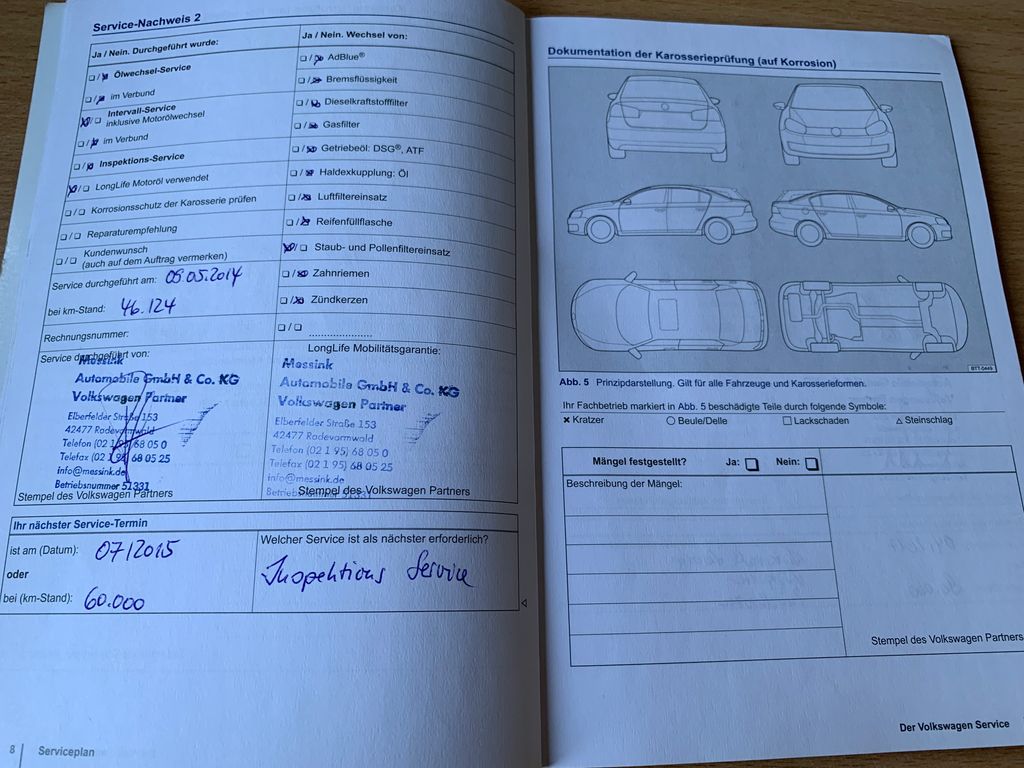 Service-Nachweis 2
Ja / Nein. Durchgeführt wurde:
Ölwechsel-Service
im Verbund
Intervall-Service
inklusive Motorölwechsel
im Verbund
Inspektions-Service
LongLife Motoröl verwendet
Korrosionsschutz der Karosserie prüfen
Reparaturempfehlung
Kundenwunsch
(auch auf dem Auftrag vermerken)
Service durchgeführt am: 05.05.2014
bei km-Stand: 46.124
Rechnungsnummer:
Service durchgeführt von:
Messink
Automobile GmbH & Co. KG
Volkswagen Partner
Elberfelder Straße 153
42477 Radevormwald
Telefon (02 1 95) 68 05 0
Telefax (02 1 95) 68 05 25
info@messink.de
Betriebsnummer 51331
Stempel des Volkswagen Partners
Ja / Nein. Wechsel von:
AdBlue®
Bremsflüssigkeit
Dieselkraftstofffilter
Gasfilter
Getriebeöl: DSG®, ATF
Haldexkupplung: Öl
Luftfiltereinsatz
Reifenfüllflasche
Staub- und Pollenfiltereinsatz
Zahnriemen
Zündkerzen
LongLife Mobilitätsgarantie:
Messink
Automobile GmbH & Co. KG
Volkswagen Partner
Elberfelder Straße 153
42477 Radevormwald
Telefon (02 1 95) 68 05 0
Telefax (02 1 95) 68 05 25
info@messink.de
Stempel des Volkswagen Partners
Ihr nächster Service-Termin
ist am (Datum): 07/2015
oder
bei (km-Stand): 60.000
Welcher Service ist als nächster erforderlich?
Inspektions Service
8 Serviceplan
Dokumentation der Karosserieprüfung (auf Korrosion)
BTT-0449
Abb. 5 Prinzipdarstellung. Gilt für alle Fahrzeuge und Karosserieformen.
Ihr Fachbetrieb markiert in Abb. 5 beschädigte Teile durch folgende Symbole:
× Kratzer ○ Beule/Delle □ Lackschaden △ Steinschlag
Mängel festgestellt? Ja: Nein:
Beschreibung der Mängel:
Stempel des Volkswagen Partners
Der Volkswagen Service